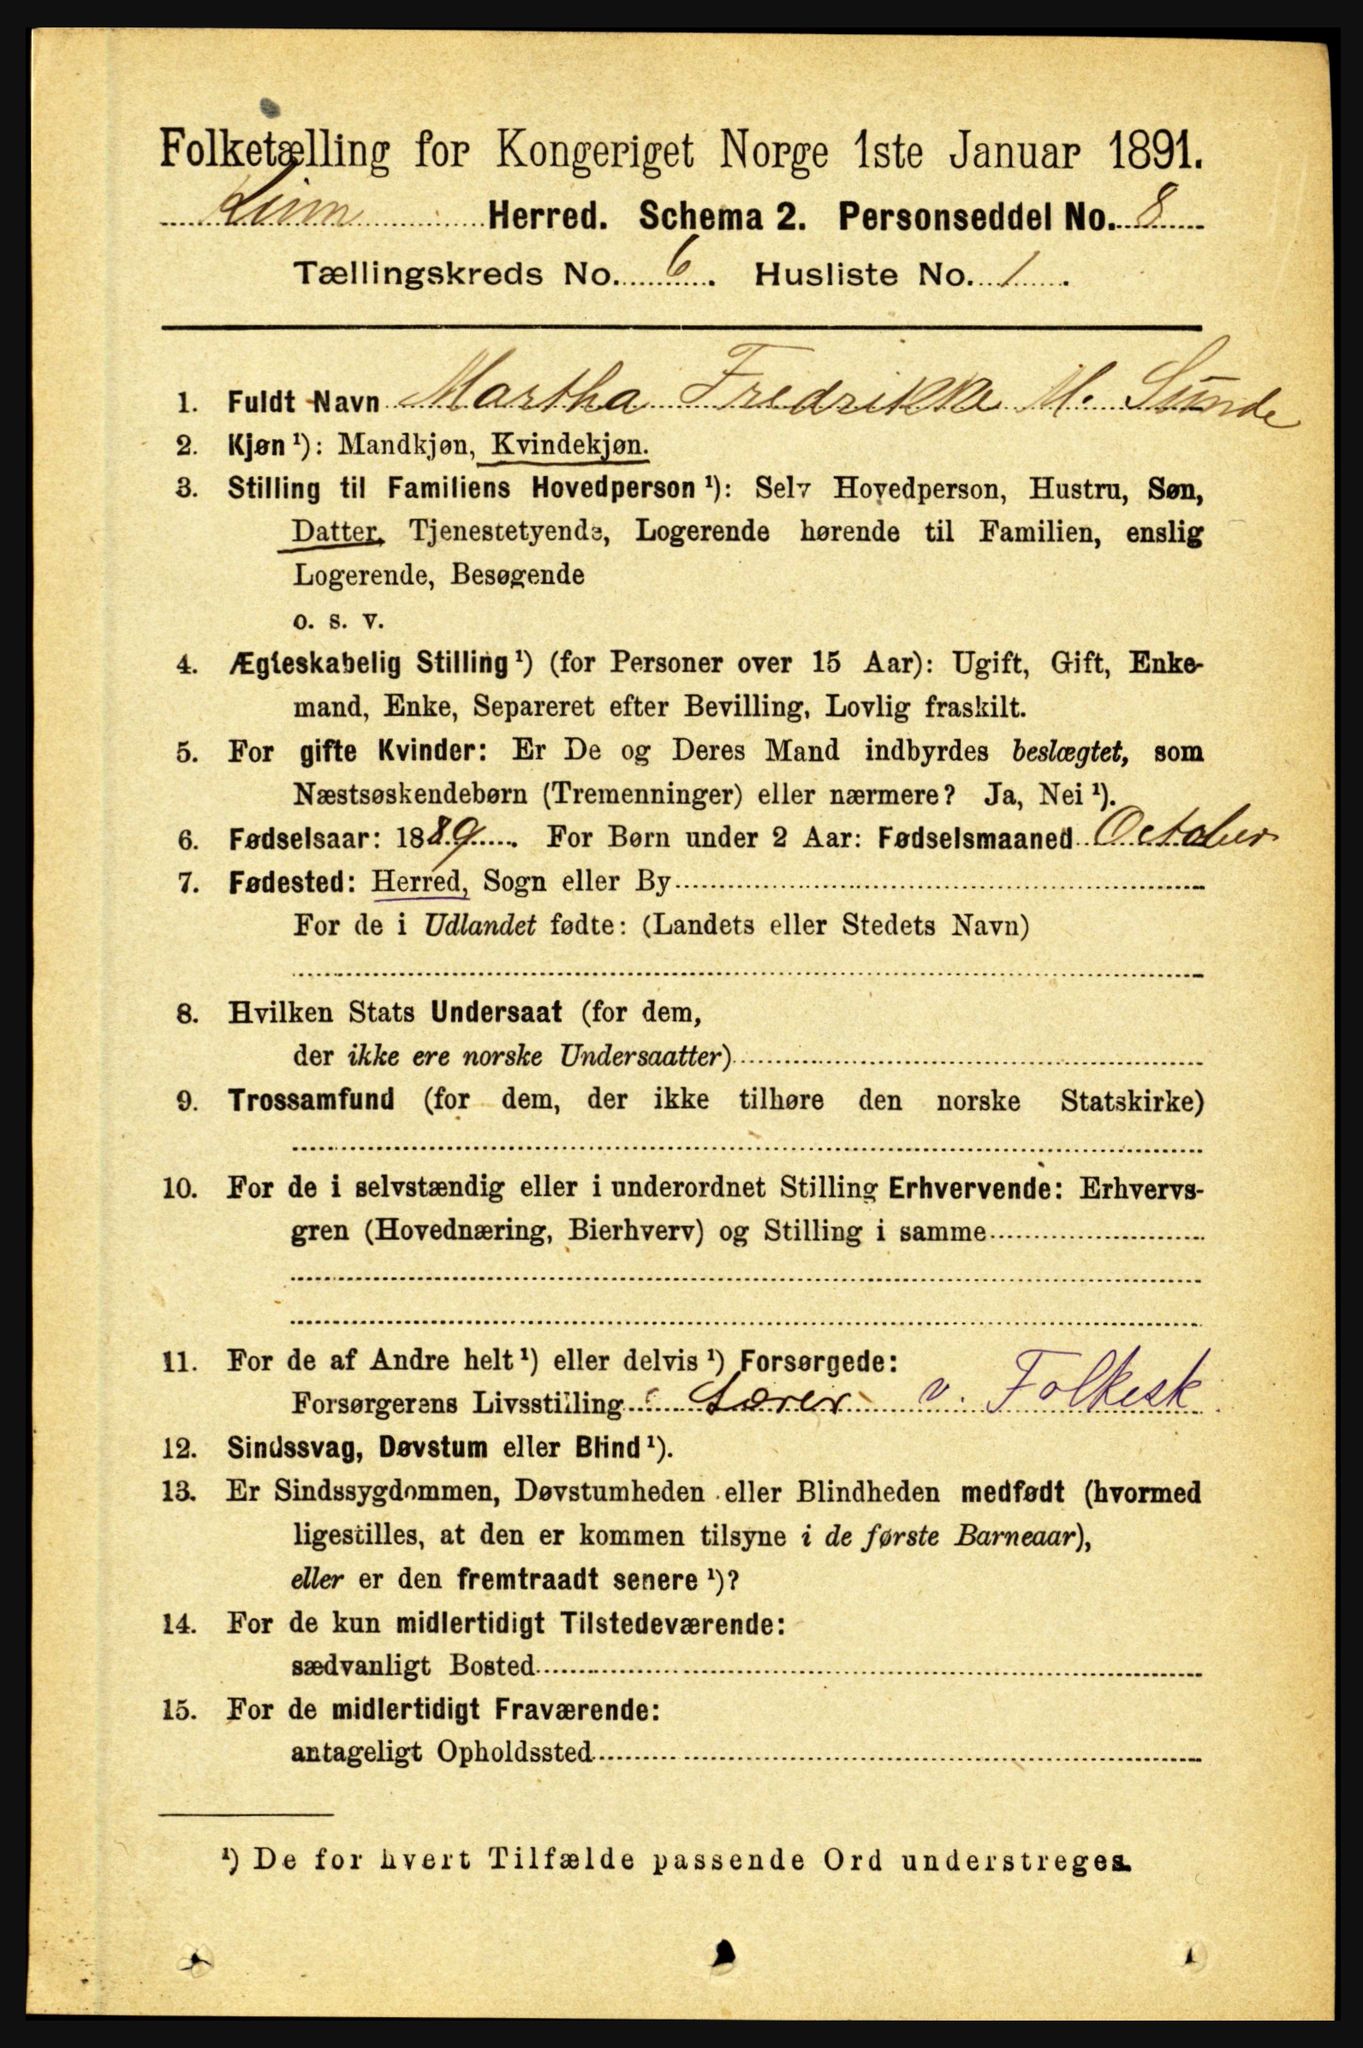 Folketælling for Kongeriget Norge 1ste Januar 1891.
Kinn Herred. Schema 2. Personseddel No. 8
Tællingskreds No. 6. Husliste No. 1.
1. Fuldt Navn Martha Fredrikke M. Sunde
2. Kjøn ¹): Mandkjøn, Kvindekjøn.
3. Stilling til Familiens Hovedperson ¹): Selv Hovedperson, Hustru, Søn,
Datter, Tjenestetyende, Logerende hørende til Familien, enslig
Logerende, Besøgende
o. s. v.
4. Ægteskabelig Stilling ¹) (for Personer over 15 Aar): Ugift, Gift, Enke-
mand, Enke, Separeret efter Bevilling, Lovlig fraskilt.
5. For gifte Kvinder: Er De og Deres Mand indbyrdes beslægtet, som
Næstsøskendebørn (Tremenninger) eller nærmere? Ja, Nei ¹).
6. Fødselsaar: 1889. For Børn under 2 Aar: Fødselsmaaned October
7. Fødested: Herred, Sogn eller By
For de i Udlandet fødte: (Landets eller Stedets Navn)
8. Hvilken Stats Undersaat (for dem,
der ikke ere norske Undersaatter)
9. Trossamfund (for dem, der ikke tilhøre den norske Statskirke)
10. For de i selvstændig eller i underordnet Stilling Erhvervende: Erhvervs-
gren (Hovednæring, Bierhverv) og Stilling i samme
11. For de af Andre helt ¹) eller delvis ¹) Forsørgede:
Forsørgerens Livsstilling Lærer v. Folkesk
12. Sindssvag, Døvstum eller Blind ¹).
13. Er Sindssygdommen, Døvstumheden eller Blindheden medfødt (hvormed
ligestilles, at den er kommen tilsyne i de første Barneaar),
eller er den fremtraadt senere ¹)?
14. For de kun midlertidigt Tilstedeværende:
sædvanligt Bosted
15. For de midlertidigt Fraværende:
antageligt Opholdssted
¹) De for hvert Tilfælde passende Ord understreges.